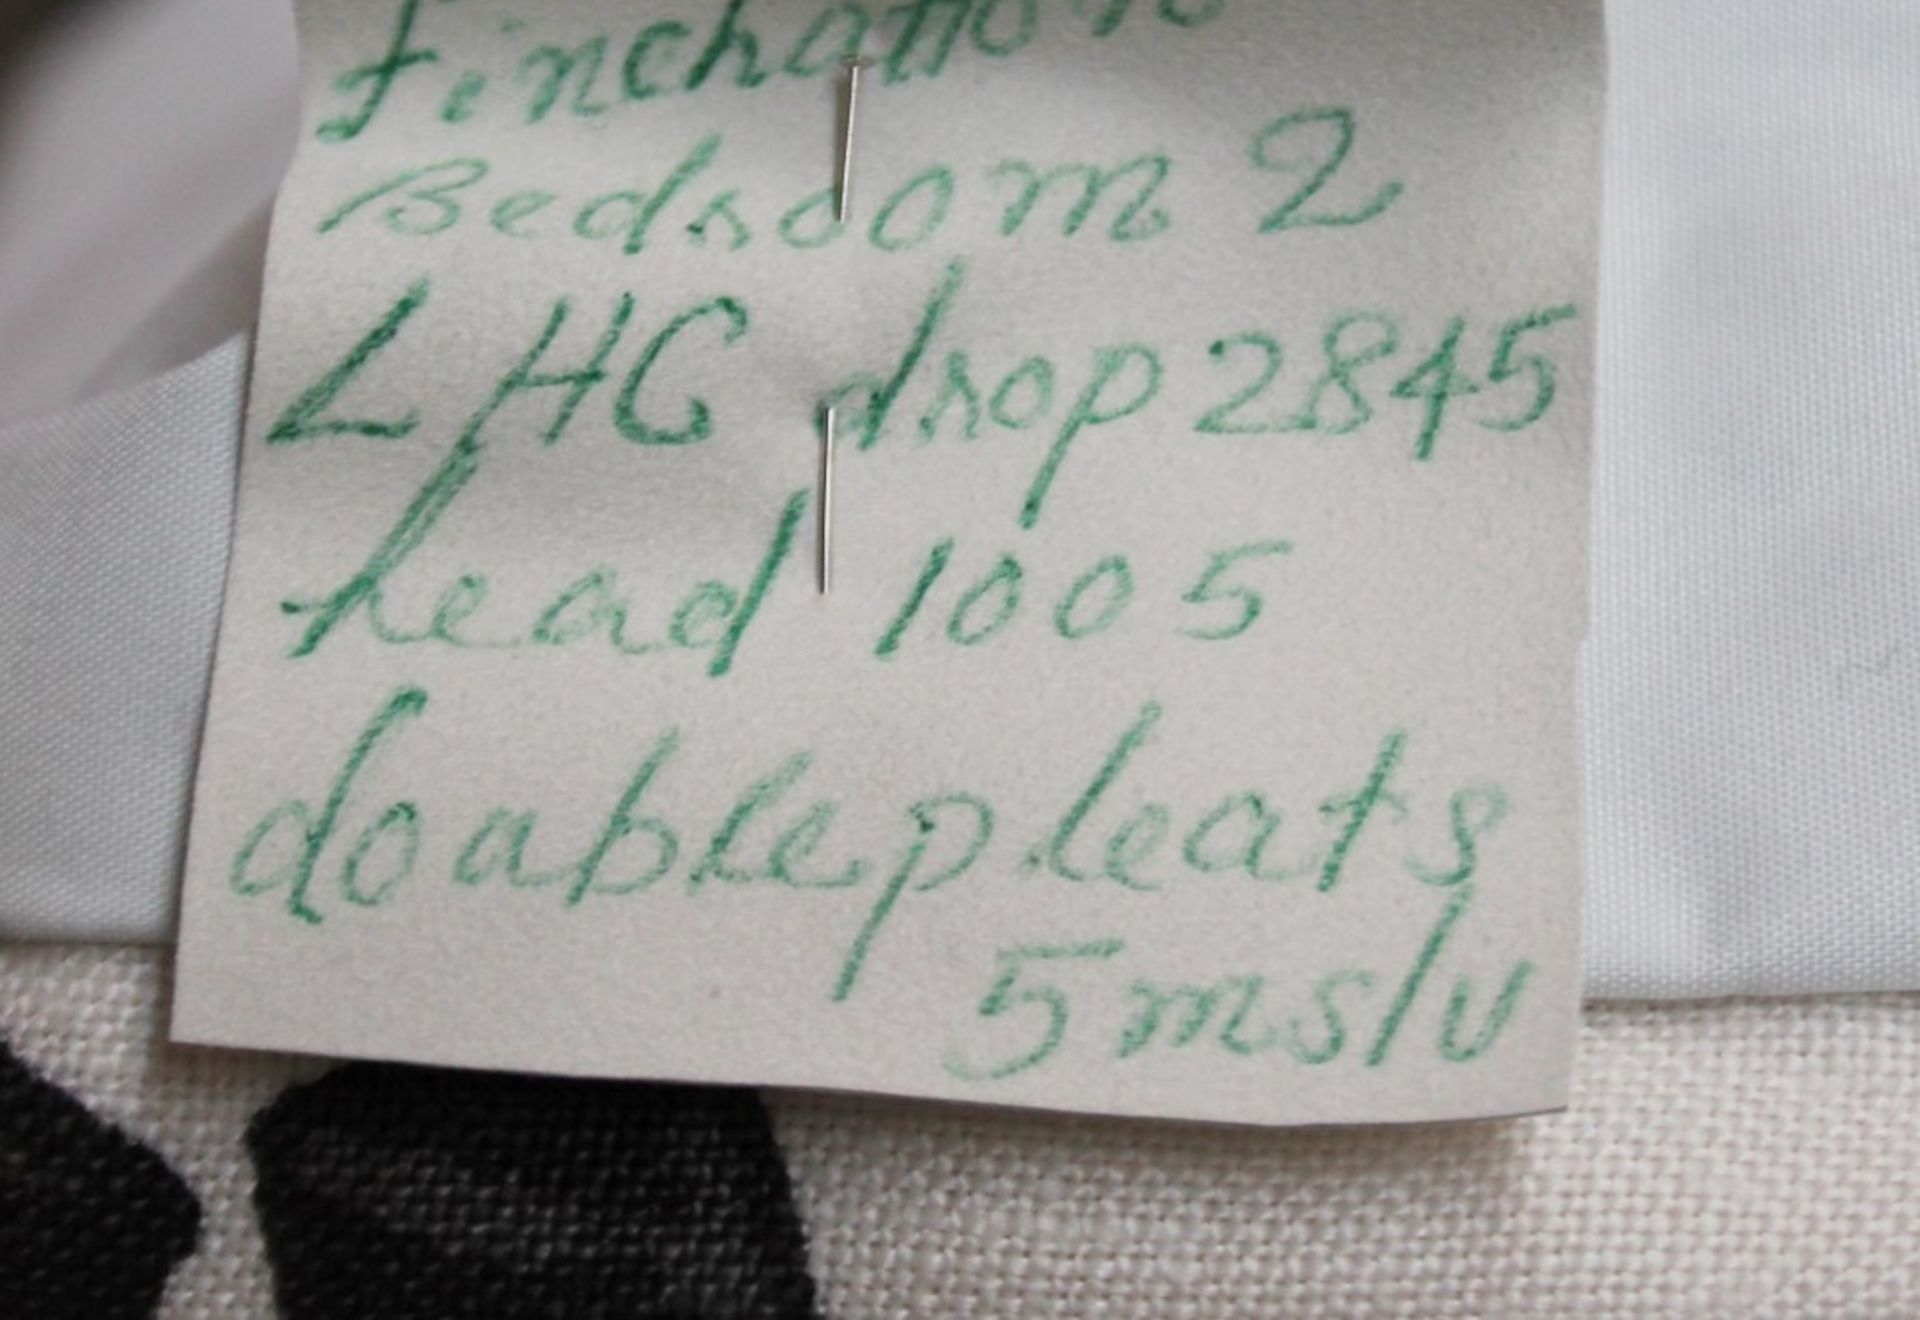 Bedroom 2
LHC drop 2845
head 1005
double pleats
5ms/v